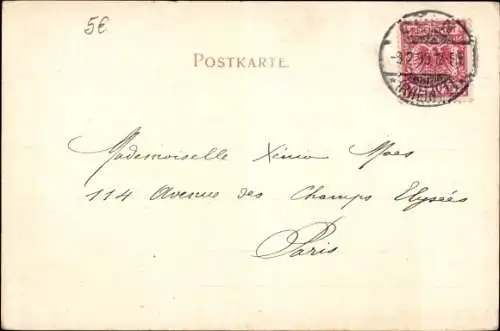 5€
POSTKARTE.
Mademoiselle Xénia Maes
114 Avenue des Champs Elysées
Paris